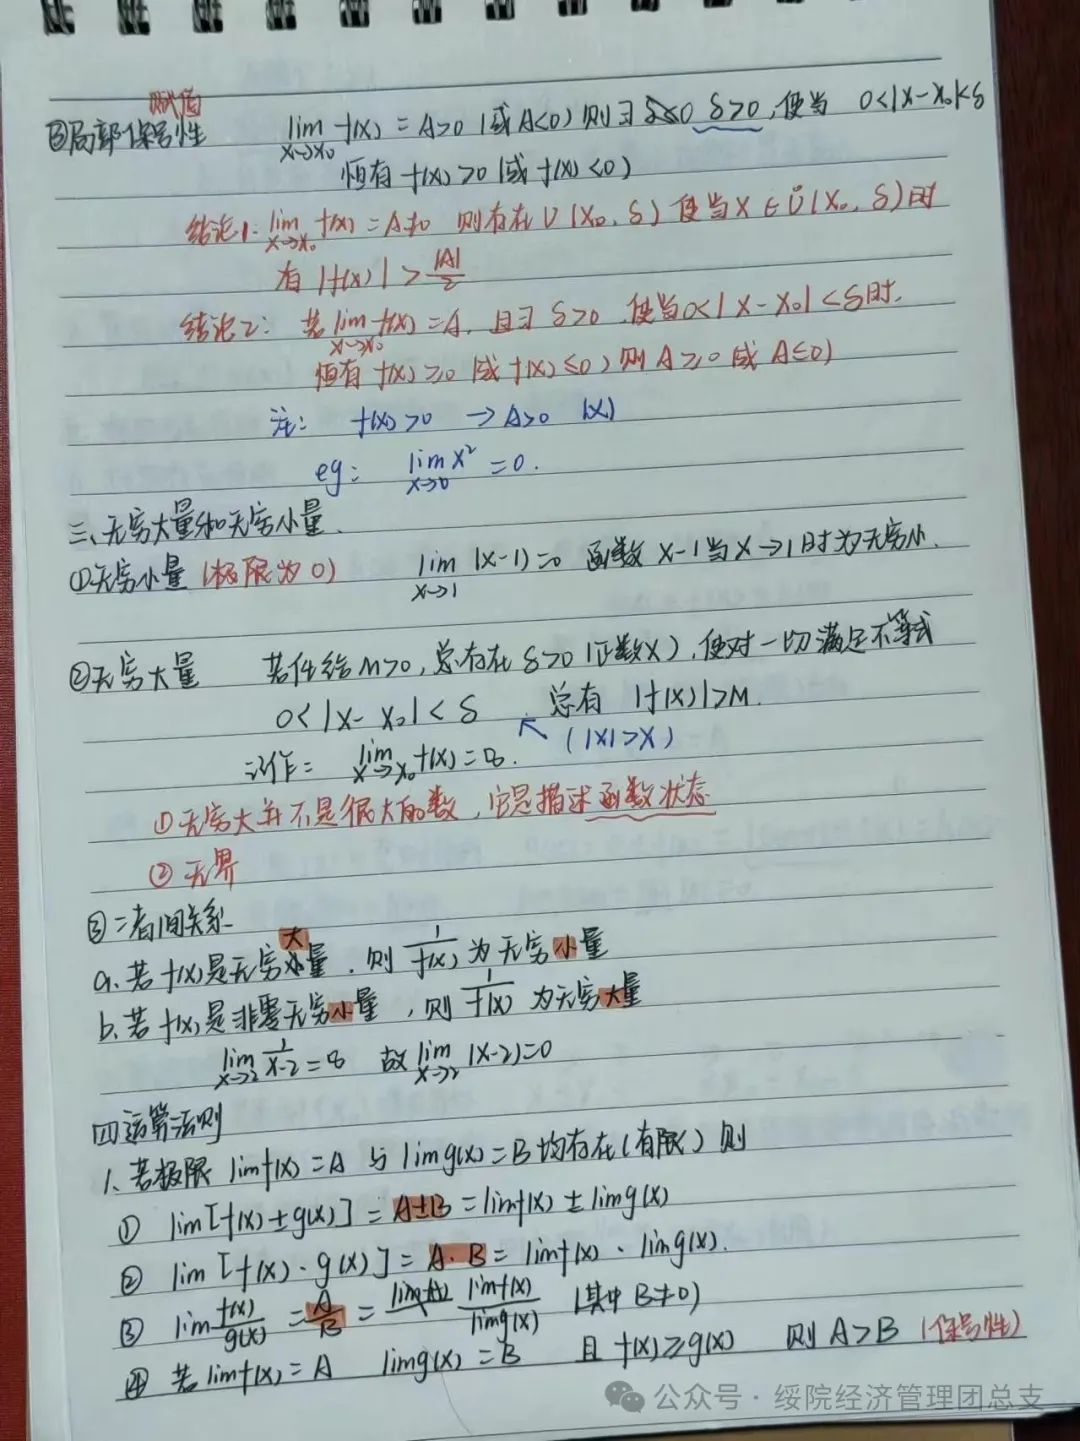 赋值
③局部保号性 lim x→x₀ f(x) = A>0 (或A<0) 则∃ δ>0, 使当 0<|x-x₀|<δ
恒有 f(x)>0 (或 f(x)<0)
结论1: lim x→x₀ f(x) = A≠0 则存在 U(x₀, δ) 使当 x∈Ů(x₀, δ)时
有 |f(x)| > |A|/2
结论2: 若 lim x→x₀ f(x) = A, 且∃ δ>0, 使当0<|x-x₀|<δ时,
恒有 f(x)≥0 (或 f(x)≤0) 则 A≥0 (或 A≤0)
注: f(x)>0 → A>0 (×)
eg: lim x→0 x² = 0.
三、无穷大量和无穷小量.
①无穷小量 (极限为0) lim x→1 (x-1)=0 函数 x-1当x→1时为无穷小.
②无穷大量 若任给 M>0, 总存在 δ>0 (正数X), 使对一切满足不等式
0<|x-x₀|<δ 总有 |f(x)|>M.
(|x|>X)
记作: lim x→x₀ f(x)=∞.
①无穷大并不是很大的数, 它是描述函数状态
②无界
③二者间关系
大
a. 若 f(x)是无穷小量, 则 1/f(x) 为无穷小量
b. 若 f(x)是非零无穷小量, 则 1/f(x) 为无穷大量
lim x→2 1/x-2 = ∞ 故 lim x→2 (x-2)=0
四运算法则
1. 若极限 limf(x)=A 与 limg(x)=B 均存在(有限) 则
① lim[f(x)±g(x)] = A±B = limf(x) ± limg(x)
② lim [f(x)·g(x)] = A·B = limf(x) · limg(x).
③ lim f(x)/g(x) = A/B = limf(x)/limg(x) (其中 B≠0)
④ 若 limf(x)=A limg(x)=B 且 f(x)≥g(x) 则 A>B (保号性)
公众号·绥院经济管理团总支